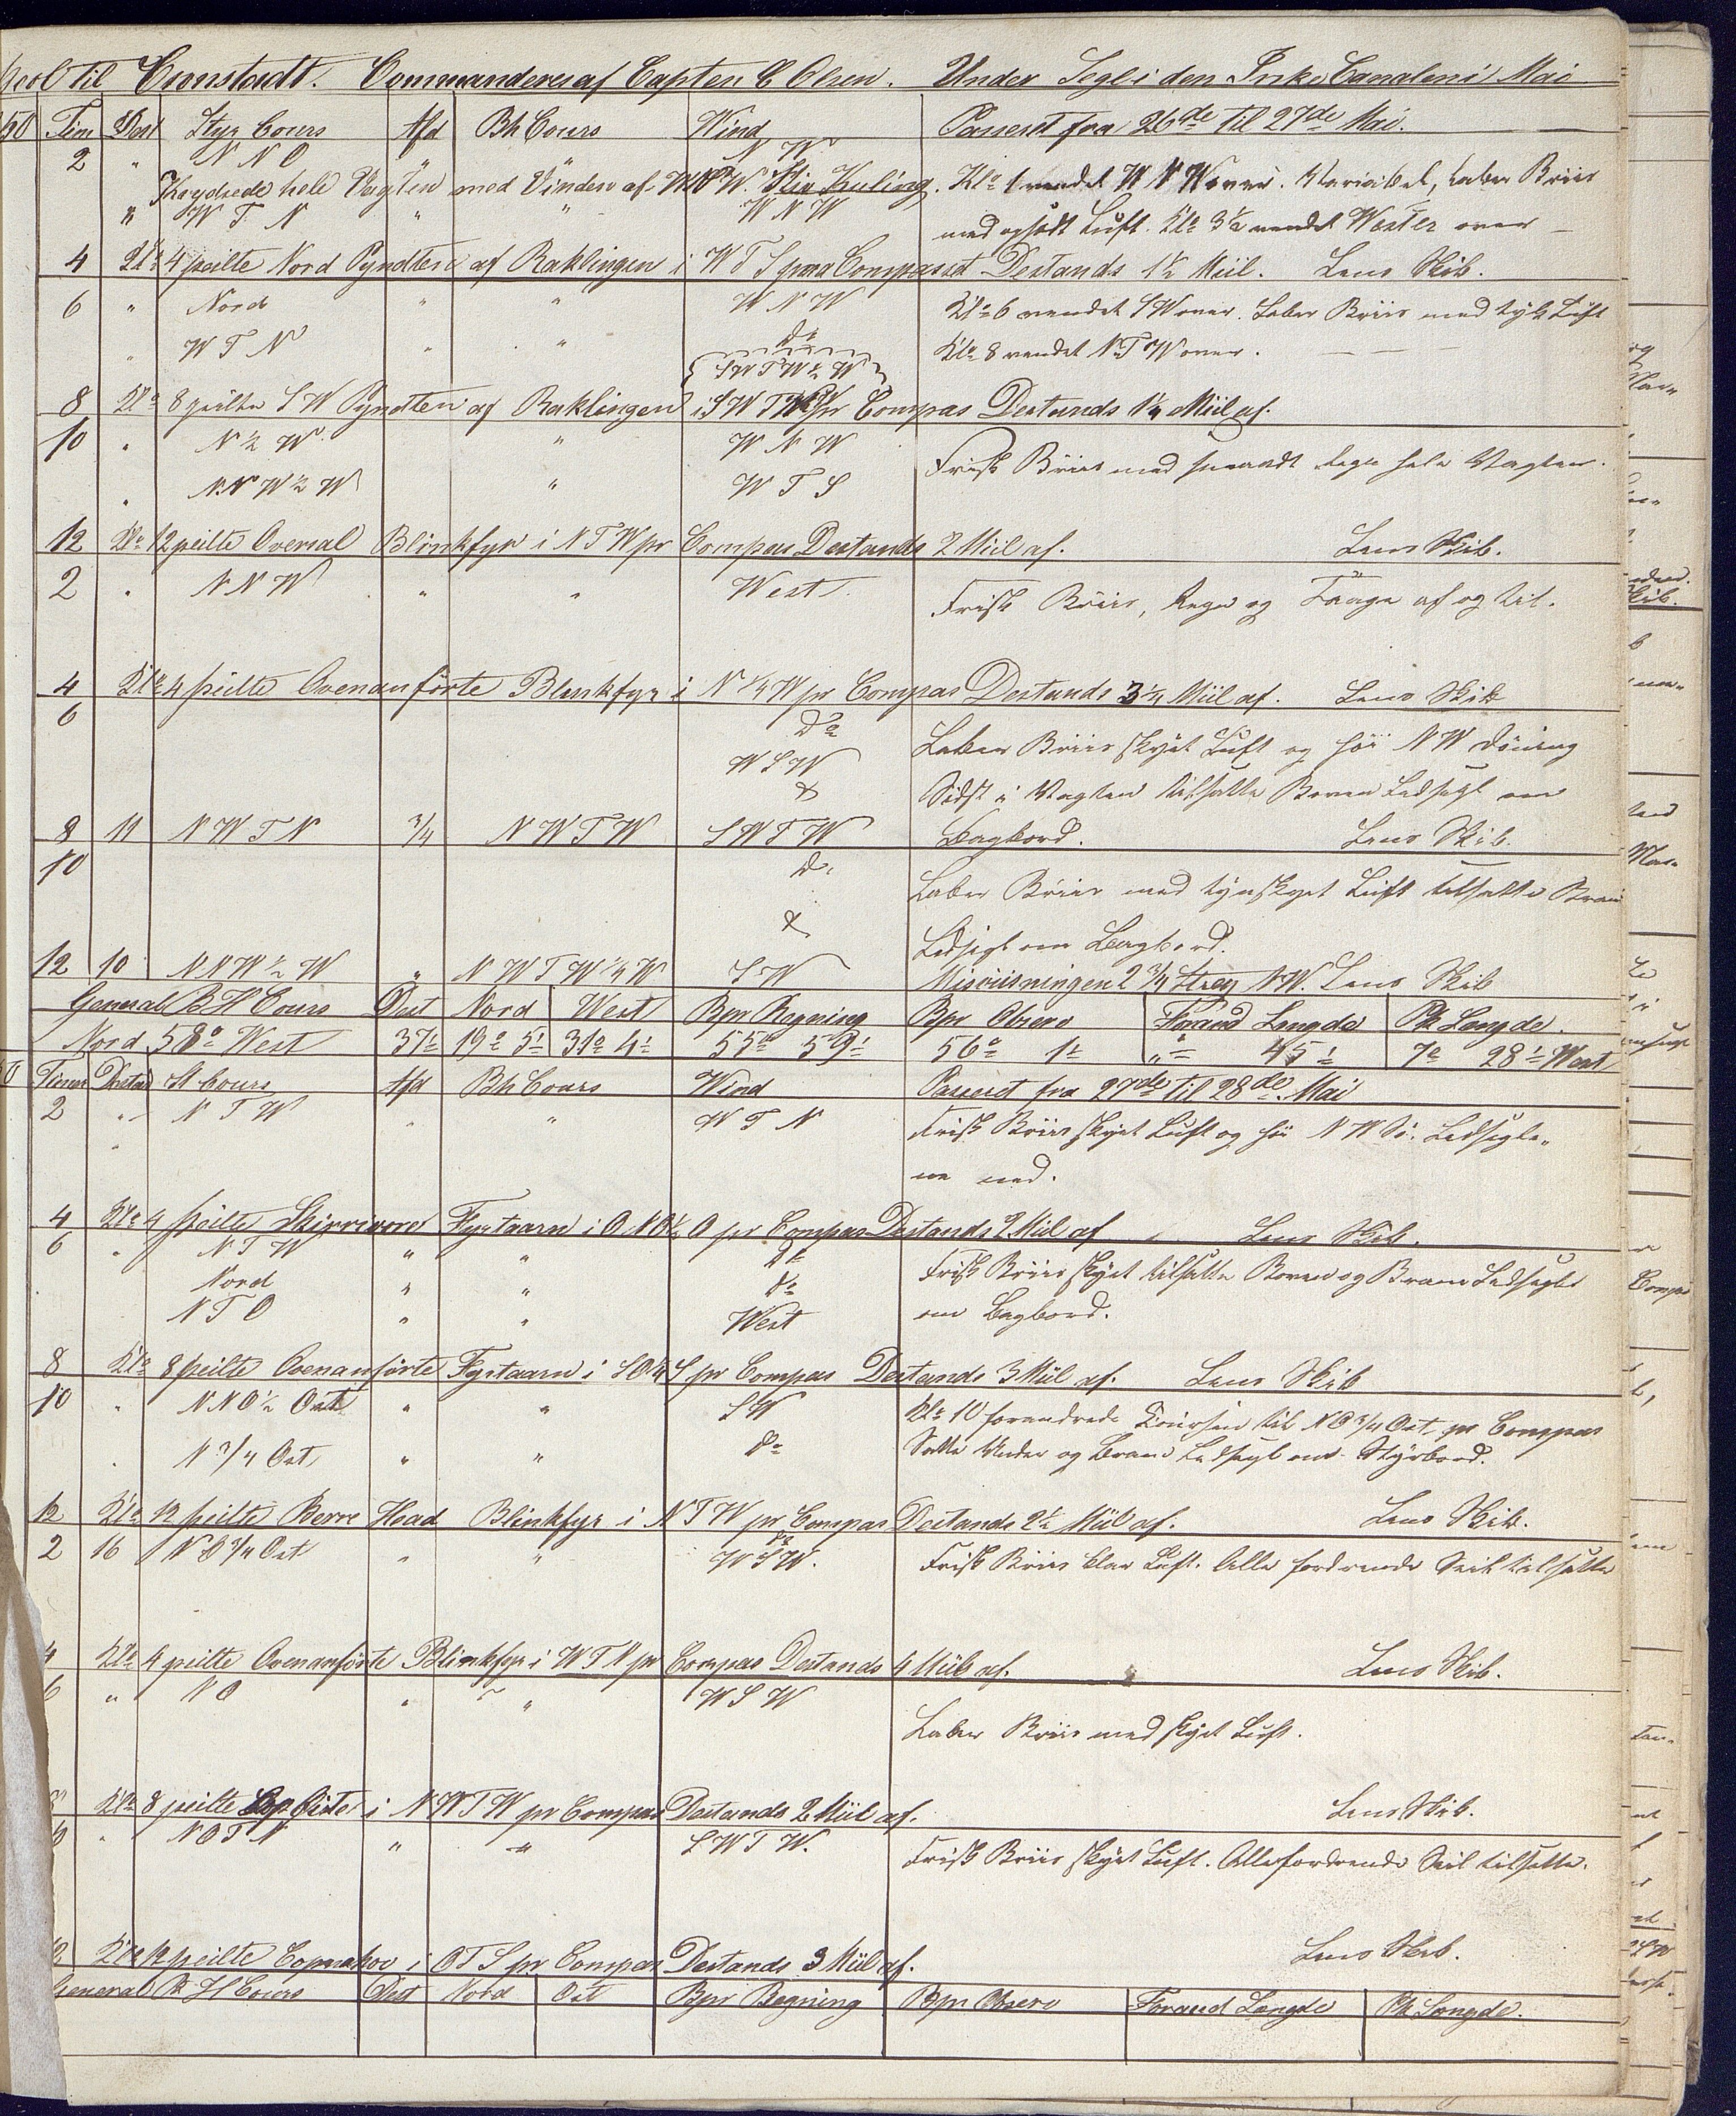 til Cronstadt. Commanderes af Capten C Olsen. Under Segl i den Irske Canalen i Mai
50 Tim Dest Styr Cours Afd Bh Cours Wind Passeret fra 26de til 27de Mai.
2 " N N O " " N W
Krydsede hele Vagten med Vinden af WNW. Stiv Kuling. Klo 1 vendt W N W over. Variabel, laber Briis
" W T N " " W N W med Luft. Klo 3½ vendt Wester over —
4 Klo 4 peilte Nord Pyndten af Raklingen i W T S pma Compasset Destands 1½ Miil. Lens Skib.
6 " Nord " " W N W Klo 6 vendt SW over. Laber Briis med tyk Luft
" W T N " " do Klo 8 vendt N T W over. — — —
SWTW½W
8 Klo 8 peilte S W Pyndten af Raklingen i S W T W pr Compas Destands 1¼ Miil af.
10 " N ½ W " W N W Frisk Briis med Regn hele Vagten.
" N N W ½ W " W T S
12 Klo 12 peilte Oversal Blinkfyr i N T W pr Compas Destands 2 Miil af. Lens Skib.
2 " N N W " " West Frisk Briis, Regn og Taage af og til.
4 Klo 4 peilte Ovenanførte Blinkfyr i N ¼ W pr Compas Destands 3¼ Miil af. Lens Skib
6 do Laber Briis skyet Luft og høi N W Dönning
W S W
do Sidst i Vagten tilsatte Boven Ledsegl om
8 11 N W T N ¾ N W T W S W T W Bagbord. Lens Skib.
10 do Laber Briis med tynskyet Luft tilsatte Bram
do Ledsegl om Bagbord.
12 10 N N W ½ W " N W T W ¼ W S W Misviisningen 2 ¾ Streg NW. Lens Skib
General B H Cours Dest Nord West Bpr Regning Bpr Observ Forand Længde Pk Længde.
Nord 58° West 37 19° 5' 31° 4' 55° 59' 56° 1' " 45' 7° 28' West
Timer Destad St Cours Afd Bh Cours Wind Passeret fra 27de til 28de Mai
2 " N T W " " W T N Frisk Briis skyet Luft og høi N W Sö. Ledsegle„
" ne ned.
4 Klo 4 peilte Skirrivore Fyrtaarn i O N O ½ O pr Compas Destands 2 Miil af Lens Skib.
6 " N T W " " do Frisk Briis skyet tilsatte Boven og Bram Ledseglet
Nord " " do om Bagbord.
N T O " " West
8 Klo 8 peilte Ovenanførte Fyrtaarn i S O ¼ S pr Compas Destands 3 Miil af. Lens Skib
10 " N N O ½ Ost " " S W Klo 10 forandrede Coursen til N O ¾ Ost pr Compas
" N ¾ Ost " " do Satte Under og Bram Ledsegl om Styrbord.
12 Klo 12 peilte Berre Head Blinkfyr i N T W pr Compas Destands 2½ Miil af. Lens Skib.
2 16 N O ¾ Ost " " do W S W. Frisk Briis klar Luft. Alle fordrende Seil tilsatte
4 Klo 4 peilte Ovenanførte Blinkfyr i W T N pr Compas Destands 4 Miil af. Lens Skib.
6 " N O " " W S W Laber Briis med skyet Luft.
8 Klo 8 peilte i N W T W pr Compas Destands 2 Miil af. Lens Skib.
" N O T N " " S W T W. Frisk Briis skyet Luft. Alle fordrende Seil tilsatte.
12 Klo 12 peilte Copnahoo i O T S pr Compas Destands 3 Miil af. Lens Skib.
General B H Cours Dist Nord Ost Bpr Regning Bpr Observ Forand Længde Pk Længde.